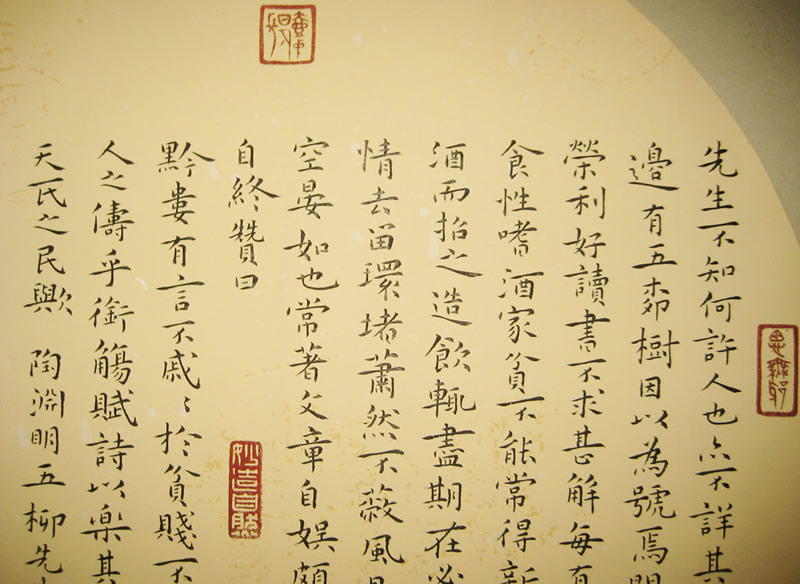 先生不知何許人也亦不詳其
邊有五柳樹因以為號焉
榮利好讀書不求甚解每有
食性嗜酒家貧不能常得
酒而招之造飲輒盡期在必
情去留環堵蕭然不蔽風
空晏如也常著文章自娛頗
自終贊曰
黔婁有言不戚〻於貧賤不
人之儔乎銜觴賦詩以樂其
天氏之民歟 陶淵明五柳先
思無邪
妙造自然